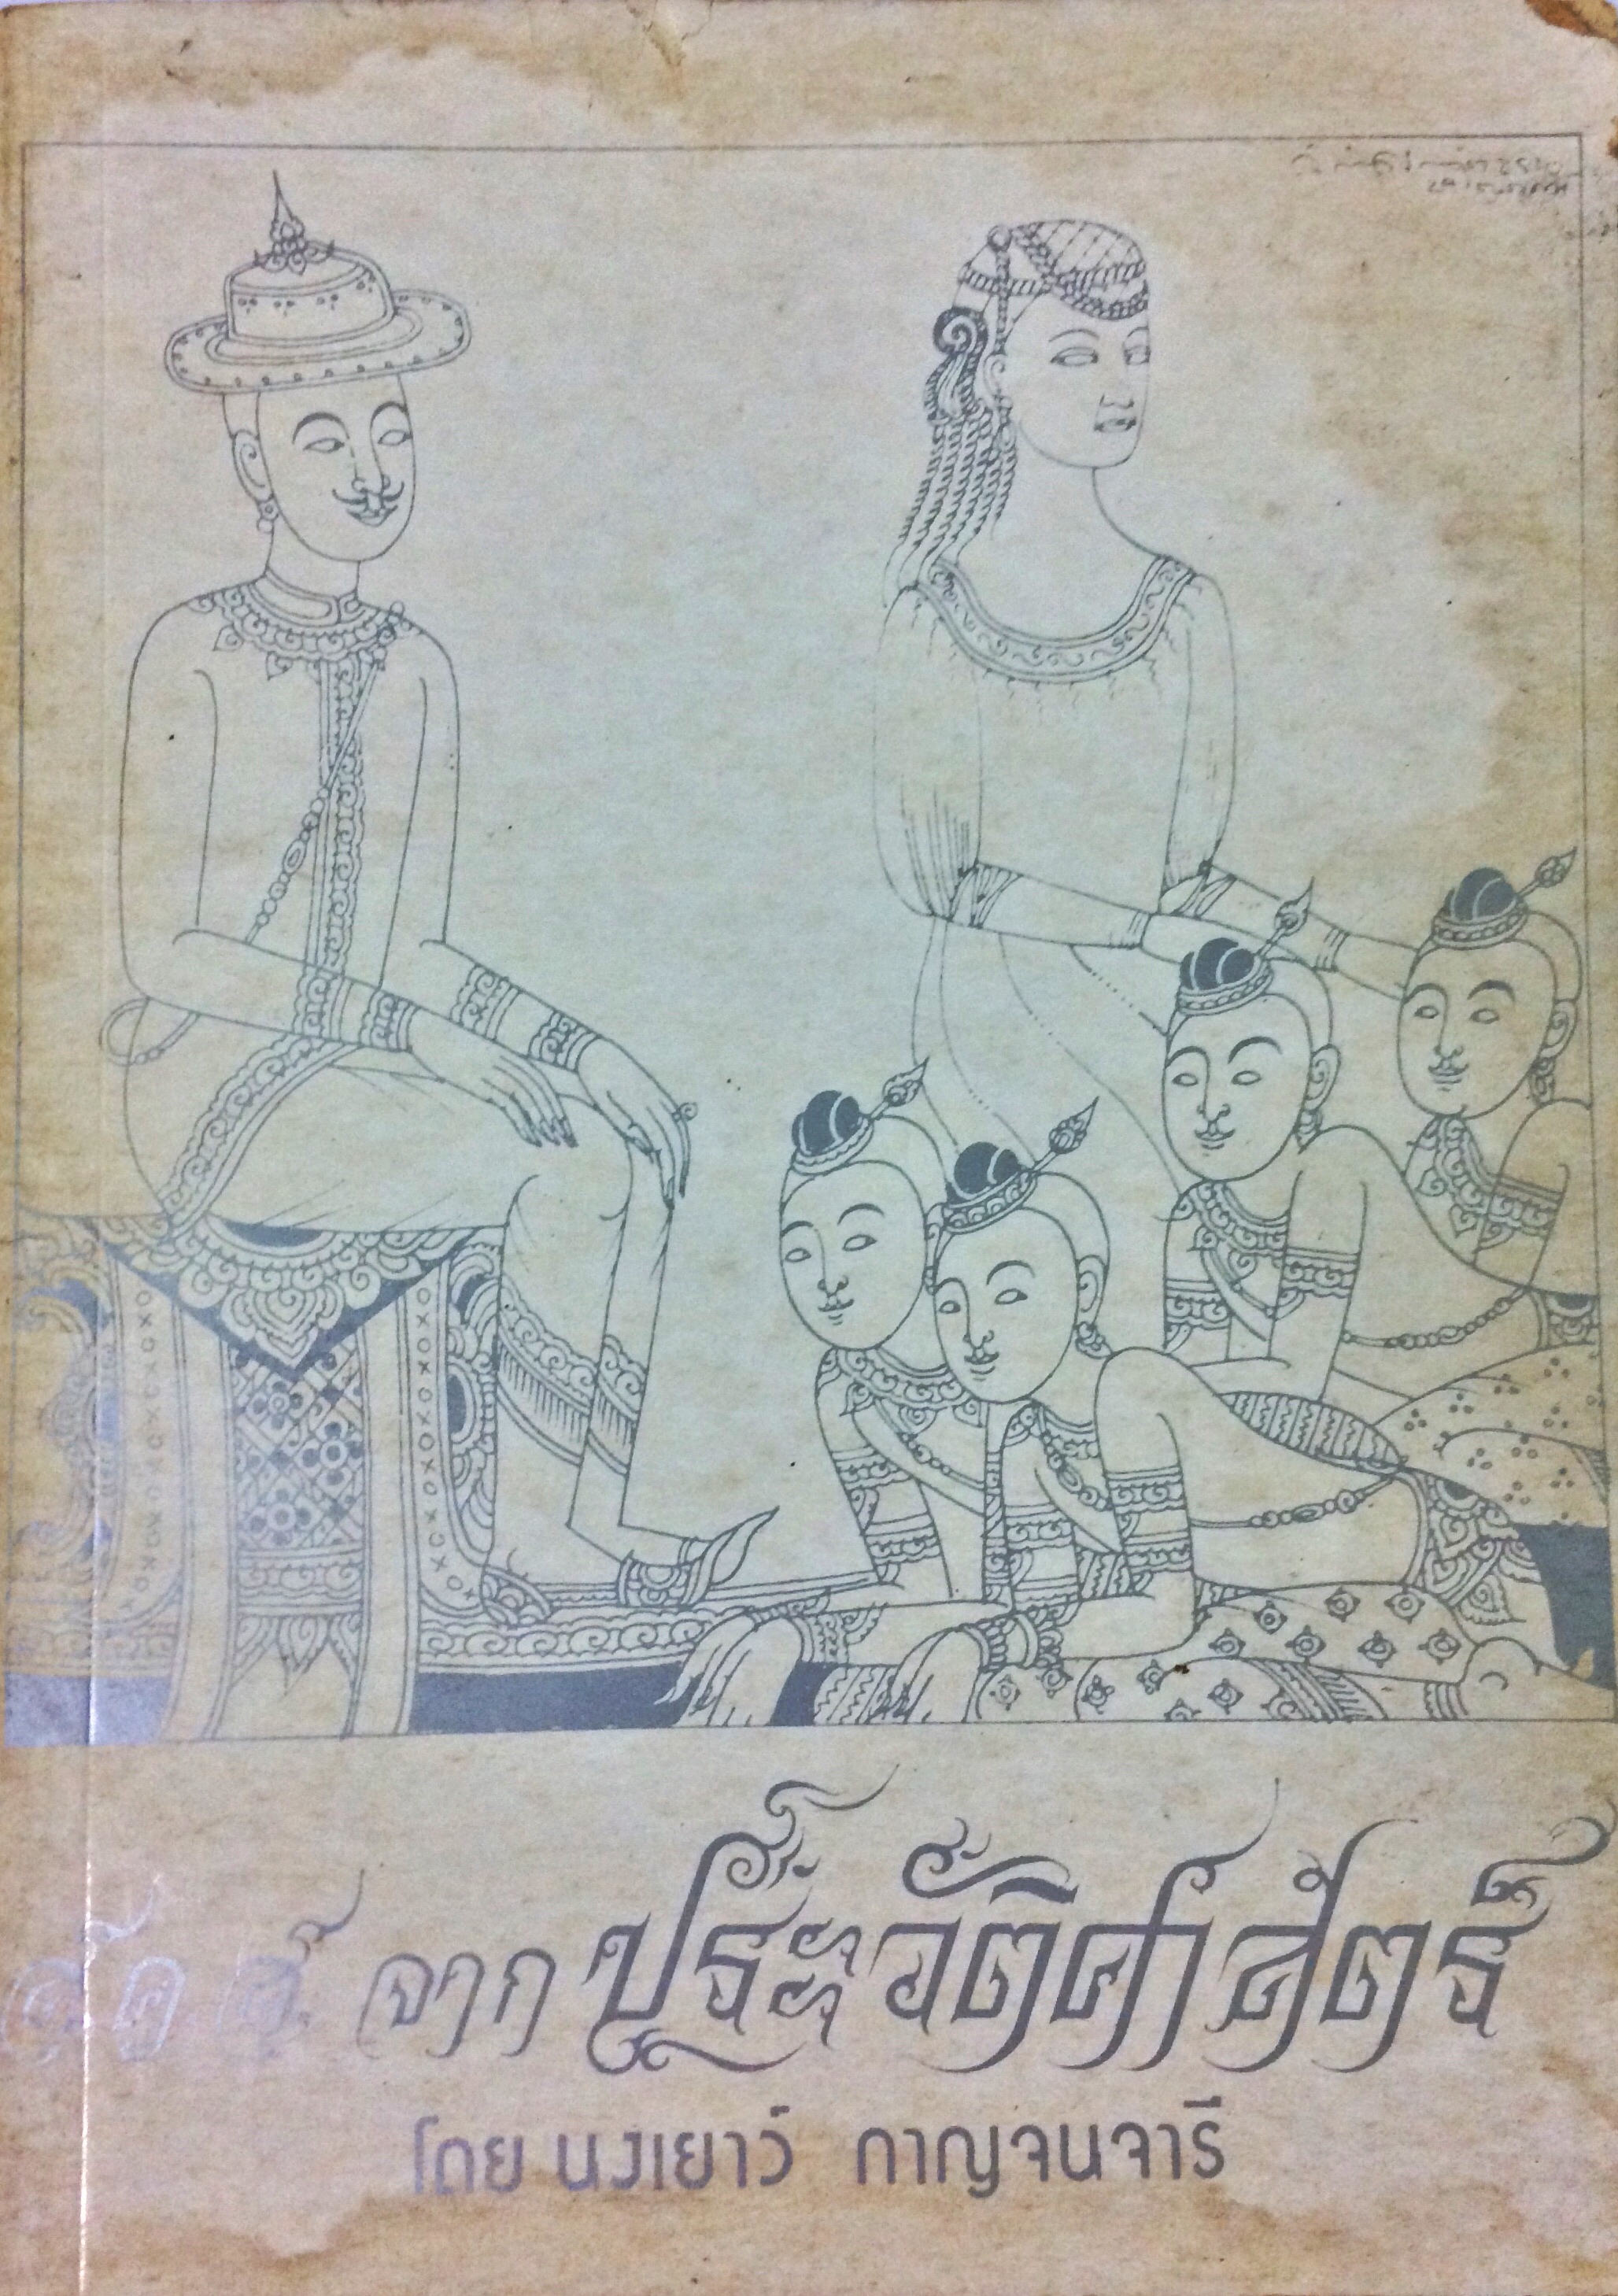 จาก ประวัติศาสตร์
โดย นงเยาว์ กาญจนจารี